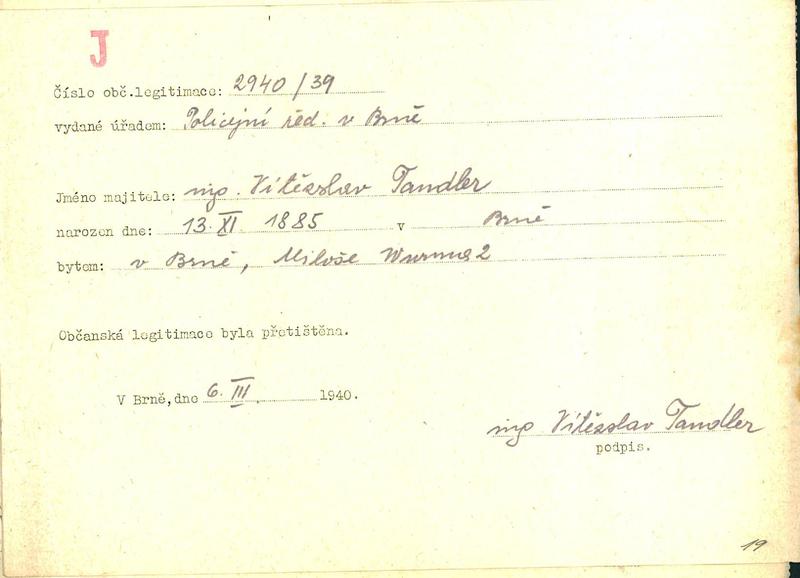 J
Číslo obč.legitimace: 2940/39
vydané úřadem: Policejní řed. v Brně
Jméno majitele: ing. Vítězslav Tandler
narozen dne: 13. XI. 1885 v Brně
bytem: v Brně, Miloše Wurma 2
Občanská legitimace byla přetištěna.
V Brně, dne 6. III. 1940.
ing Vítězslav Tandler
podpis.
19